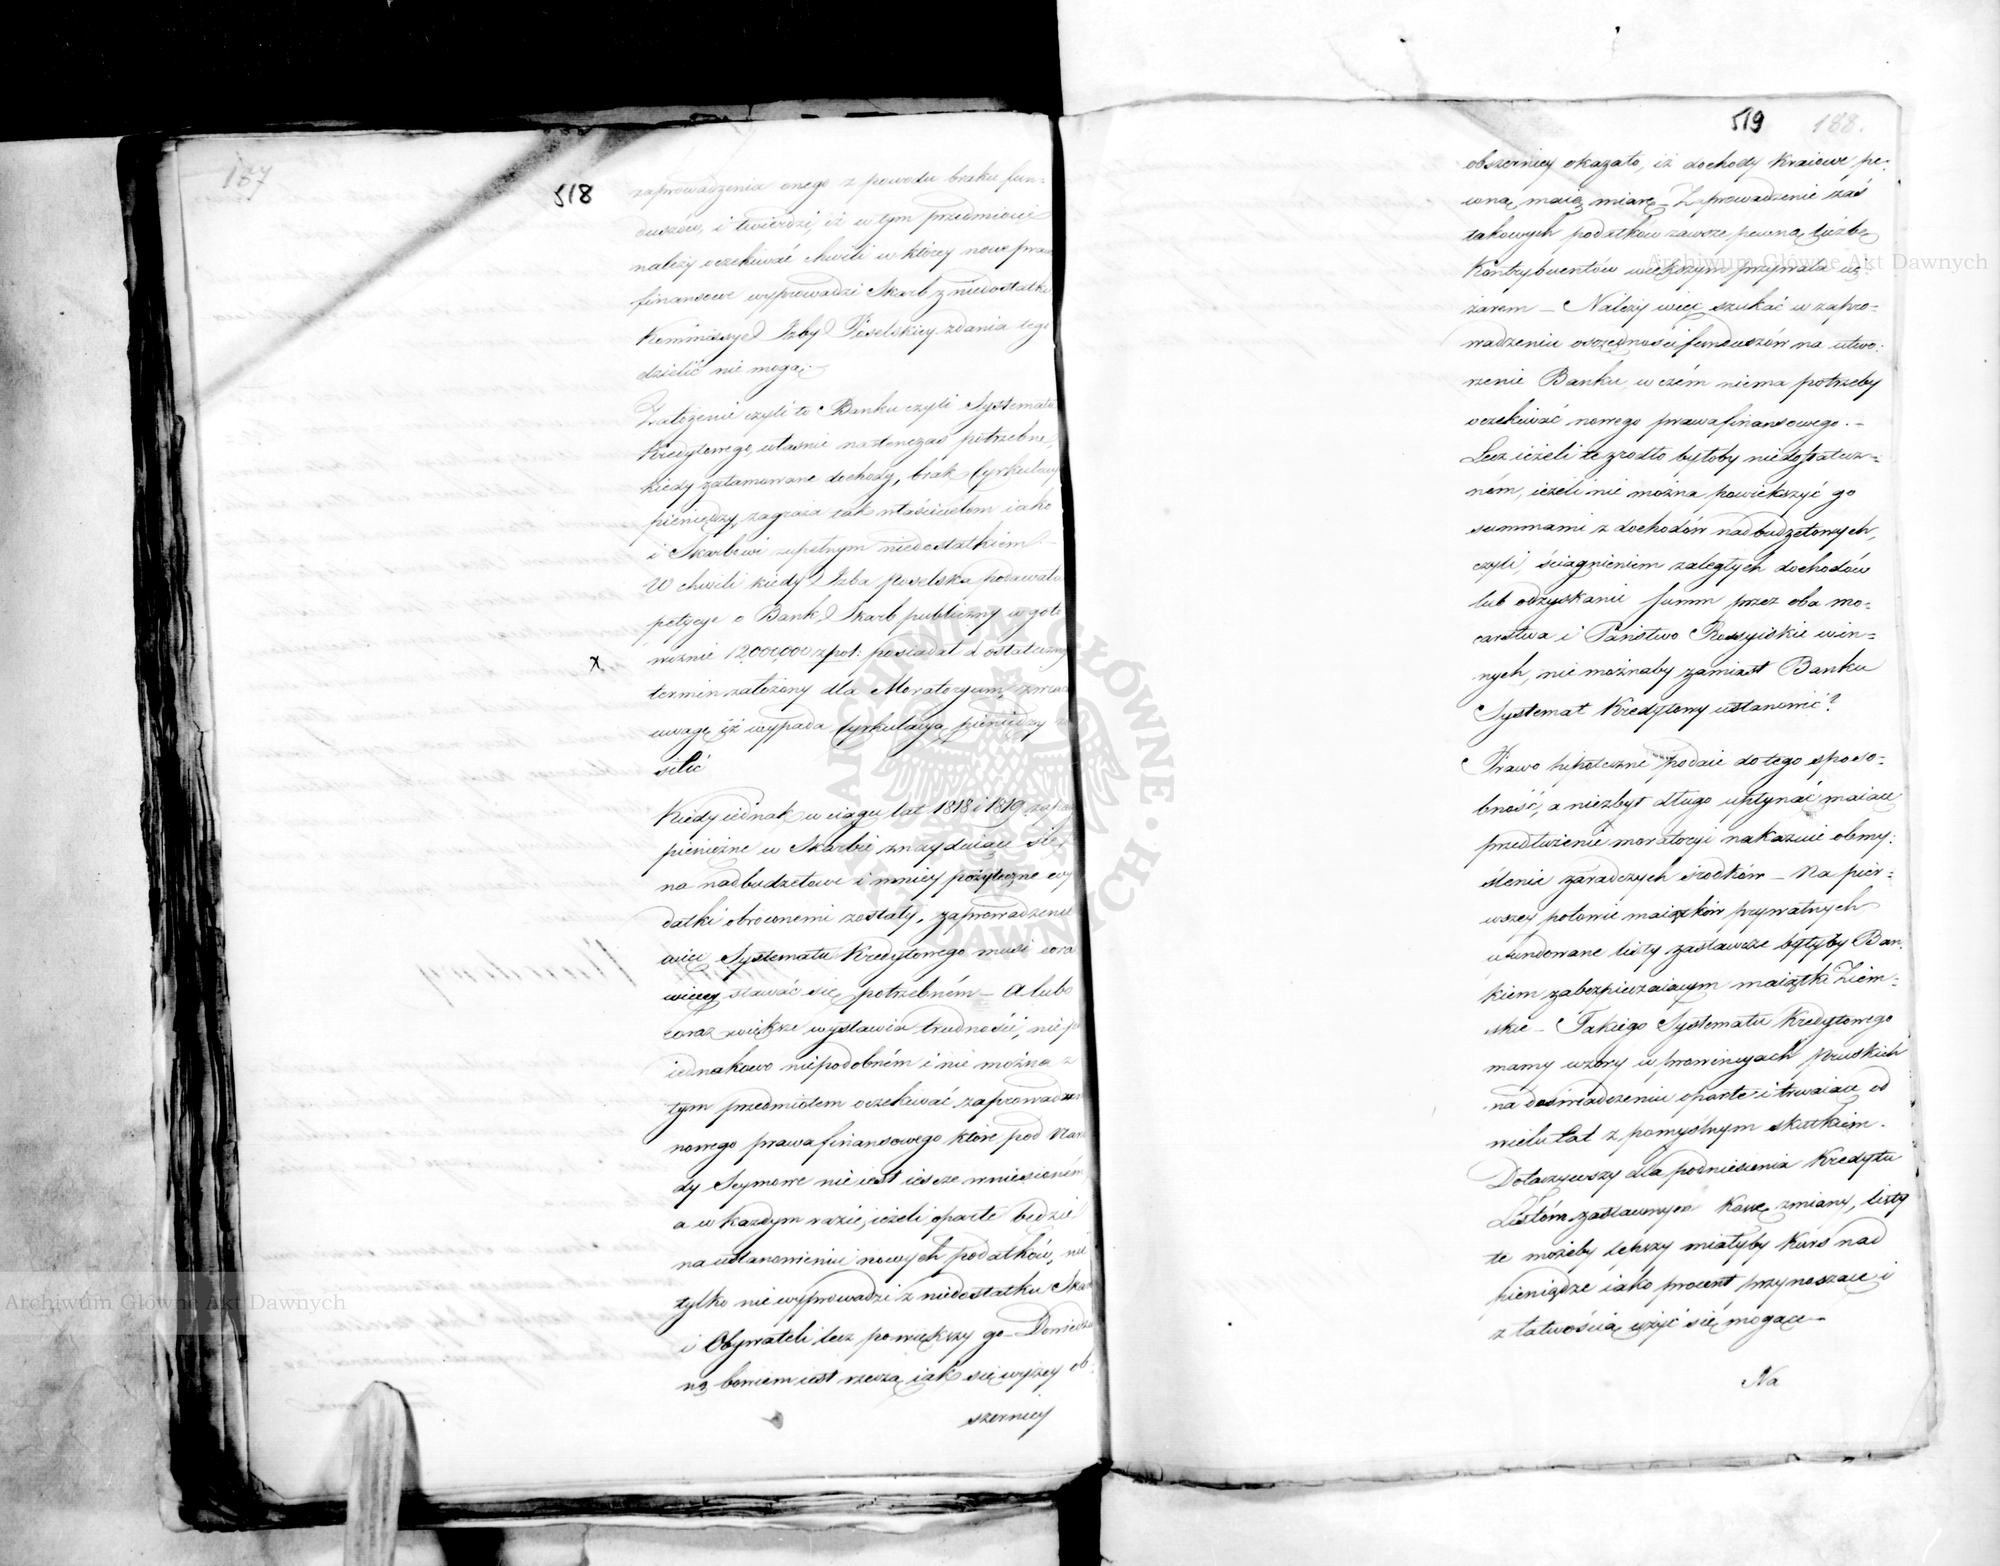 187
518
zaprowadzenia onego z powodu braku fun-
duszów, i twierdzi, iż w tym przedmiocie
należy oczekiwać chwili w którey nowe prawo
finansowe wyprowadzi Skarb z niedostatku
Kommissye Izby Poselskiey zdania tego
dzielić nie mogą.
Założenie czyli to Banku czyli Systematu
Kredytowego, własnie nastenczas potrzebne
kiedy zatamowane dochody, brak Cyrkulacyi
pieniędzy, zagraża tak właścicielom iako
i Skarbowi zupełnym niedostatkiem.—
W chwili kiedy Izba Poselska podawała
petycye o Bank, Skarb publiczny w goto
wiznie 12,000,000 zpol: posiadał a ostateczny
x
termin założony dla Moratoryum, zwra
uwagę iż wypada Cyrkulacyą pieniędzy
silić
Kiedy iednak w ciągu lat 1818 i 1819 zapasy
pieniężne w Skarbie znayduiące się
na nadbudżetowe i mniey pożyteczne wy
datki obrócnemi zostały, zaprowadzenie
więc Systematu Kredytowego musi cora
więcey stawać się potrzebném — A lubo
coraz większe wystawia trudności, nie
iednakowo niepodobném i nie można z
tym przedmiotem oczekiwać zaprowadzen
nowego prawa finansowego które pod Nara
dy Seymowe nie iest ieszcze wniesioném
a w każdym razie, ieżeli oparte będzie
na ustanowieniu nowych podatków, nie
tylko nie wyprowadzi z niedostatku Skar
i Obywateli lecz powiększy go — Dowiedzio
ną bowiem iest rzeczą, iak się wyżey ob-
szerniey
519
188.
obszerniey okazało, iż dochody Kraiowe pe-
wną maią miarę — Zaprowadzenie zaś
takowych podatków zawsze pewną liczbę
Kontrybuentów większym przywala cię-
żarem — Należy więc szukać w zapro-
wadzeniu oszczędności funduszów na utwo-
rzenie Banku, w czém niema potrzeby
oczekiwać nowego prawa finansowego. —
Lecz ieżeli te zrodło byłoby niedostatecz-
ném, ieżeli nie można powiększyć go
summami z dochodów nadbudżetowych,
czyli ściągnieniem zaległych dochodów
lub odzyskanie Summ przez oba mo-
carstwa i Państwo Rossyiskie win-
nych, nie możnaby zamiast Banku
Systemat Kredytowy ustanowić?
Prawo hipoteczne podaie do tego sposo-
bność, a niezbyt długo upłynąć maiące
przedłużenie moratoryi nakazuie obmy-
ślenie zaradczych środków — Na pier-
wszey połowie maiątków prywatnych
ufundowane listy zastawcze byłyby Ban-
kiem zabezpieczaiącym maiątki Ziem-
skie — Takiego Systematu Kredytowego
mamy wzory w prowincyach pruskich
na doświadczeniu oparte i trwaiące od
wielu lat z pomyślnym skutkiem.
Dołączywszy dla podniesienia Kredytu
Listom zastawnym Kassę zmiany, listy
te możeby lepszy miałyby Kurs nad
pieniądze iako procent przynoszące i
z łatwością użyć się mogące —
Na
Archiwum Główne Akt Dawnych
Archiwum Główne Akt Dawnych
ARCHIWUM GŁÓWNE AKT DAWNYCH